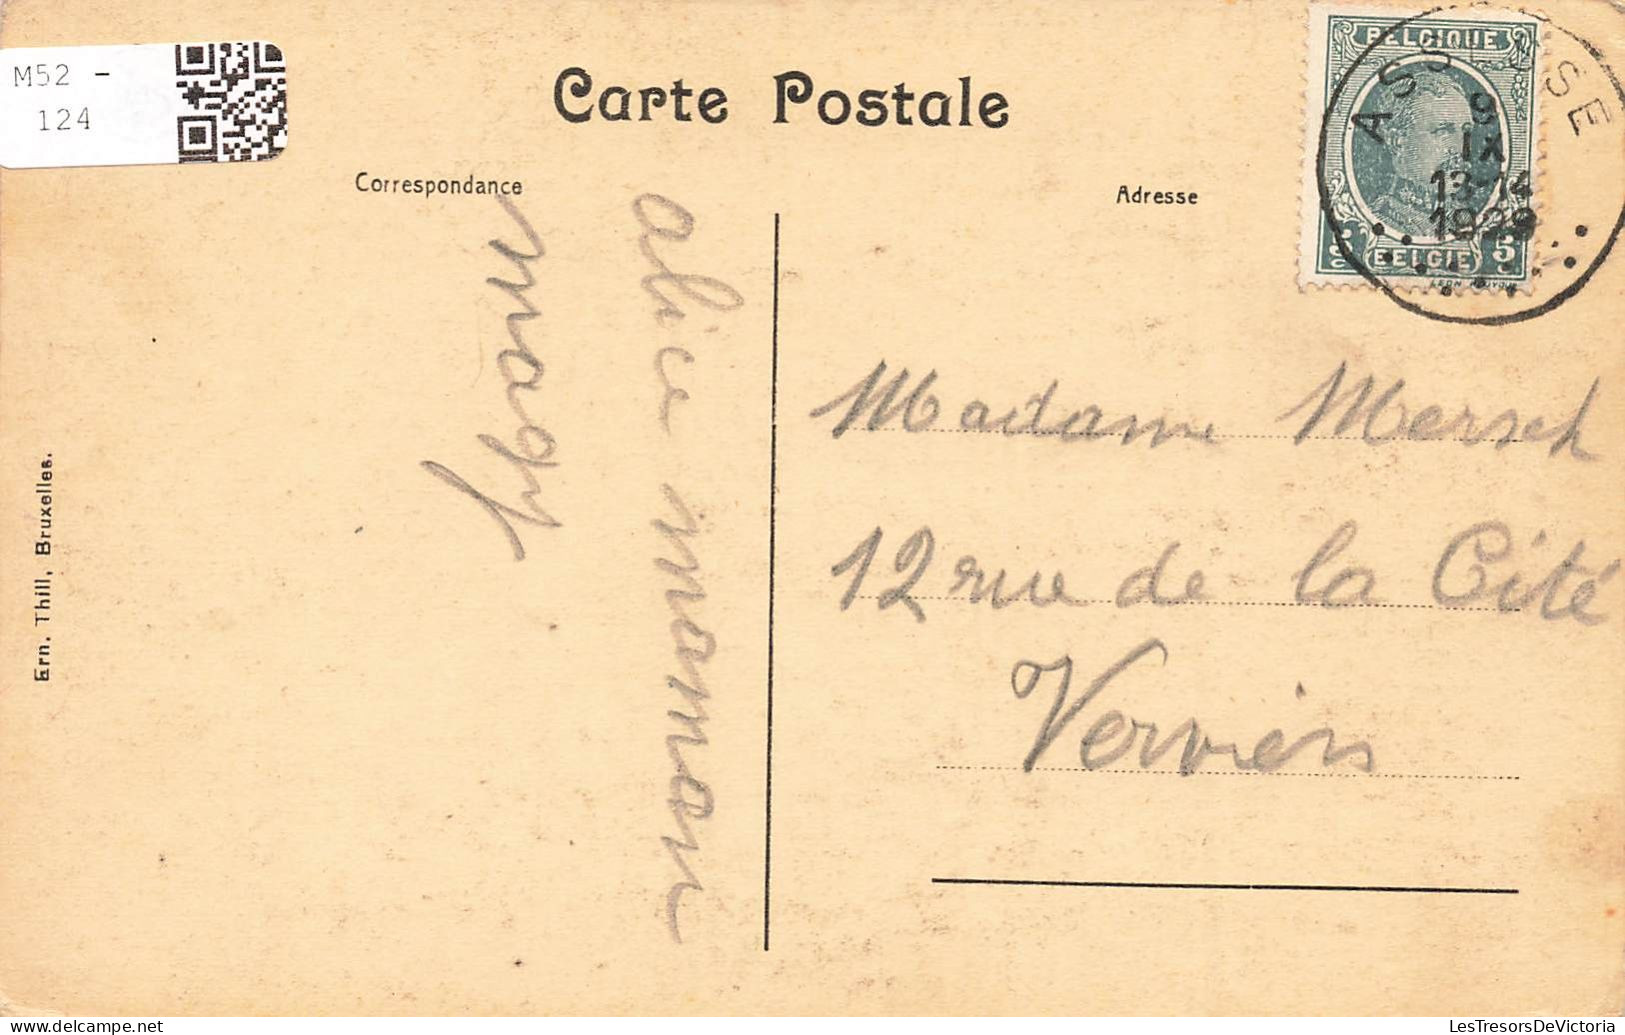 M52 -
124
Carte Postale
Correspondance
Adresse
BELGIQUE
5
BELGIE
5
9
IX
13-14
alice maman
magy
Madame Mersch
12 rue de la Cité
Verviers
Ern. Thill, Bruxelles.
delcampe.net
LesTresorsDeVictoria